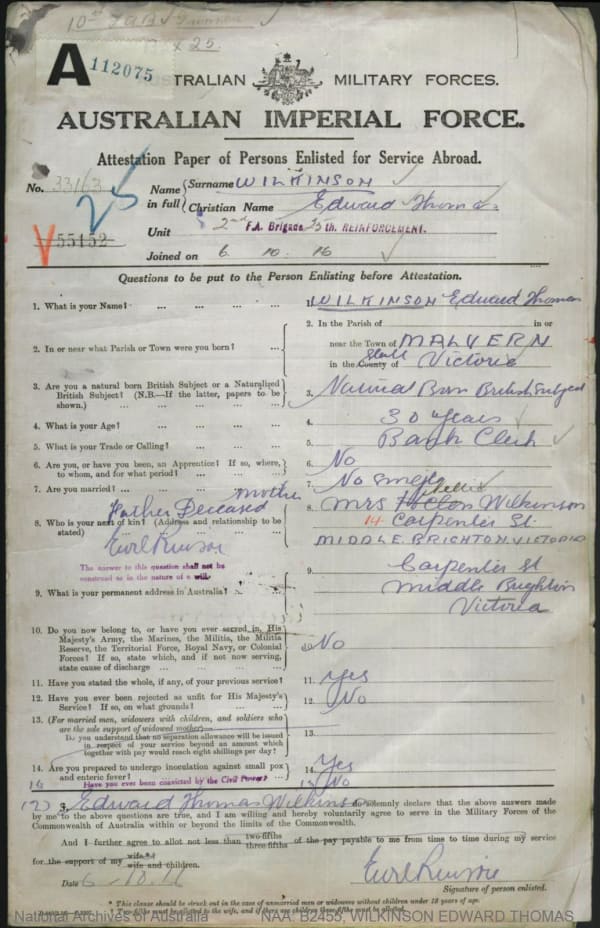 A 112075
25
AUSTRALIAN MILITARY FORCES.
AUSTRALIAN IMPERIAL FORCE.
Attestation Paper of Persons Enlisted for Service Abroad.
No. 33163
25
V55152
Name in full
Surname WILKINSON
Christian Name Edward Thomas
Unit 2nd F.A. Brigade 25th REINFORCEMENT.
Joined on 6. 10. 16
Questions to be put to the Person Enlisting before Attestation.
1. What is your Name? ... ... ... ...
1. WILKINSON Edward Thomas
2. In or near what Parish or Town were you born? ...
2. In the Parish of in or
near the Town of MALVERN
in the County of State Victoria
3. Are you a natural born British Subject or a Naturalized
British Subject? (N.B.—If the latter, papers to be
shown.) ... ... ... ... ...
3. Natural Born British Subject
4. What is your Age? ... ... ... ...
4. 30 years
5. What is your Trade or Calling? ... ... ...
5. Bank Clerk
6. Are you, or have you been, an Apprentice? If so, where,
to whom, and for what period? ... ... ...
6. No
7. Are you married? ... ... ... ...
7. No Single
8. Who is your next of kin? (Address and relationship to be
stated) ... ... ...
mother
Father Deceased
8. Mrs Wilkinson
14 Carpenter St.
MIDDLE BRIGHTON, VICTORIA
The answer to this question shall not be
construed as in the nature of a will.
9. What is your permanent address in Australia? ...
9. Carpenter St
Middle Brighton
Victoria
10. Do you now belong to, or have you ever served in, His
Majesty's Army, the Marines, the Militia, the Militia
Reserve, the Territorial Force, Royal Navy, or Colonial
Forces? If so, state which, and if not now serving,
state cause of discharge ... ... ...
10. No
11. Have you stated the whole, if any, of your previous service?
11. Yes
12. Have you ever been rejected as unfit for His Majesty's
Service? If so, on what grounds? ... ... ...
12. No
13. (For married men, widowers with children, and soldiers who
are the sole support of widowed mother)—
Do you understand that no separation allowance will be issued
in respect of your service beyond an amount which
together with pay would reach eight shillings per day?
13.
14. Are you prepared to undergo inoculation against small pox
and enteric fever? ... ... ...
14. Yes
Have you ever been convicted by the Civil Power?
No
I, Edward Thomas Wilkinson do solemnly declare that the above answers made
by me to the above questions are true, and I am willing and hereby voluntarily agree to serve in the Military Forces of the
Commonwealth of Australia within or beyond the limits of the Commonwealth.
And I further agree to allot not less than two-fifths three-fifths of the pay payable to me from time to time during my service
for the support of my wife* wife and children.
Date 6.10.16
Signature of person enlisted.
* This clause should be struck out in the case of unmarried men or widowers without children under 18 years of age.
† Two-fifths must be allotted to the wife, and if there are children three-fifths must be allotted.
National Archives of Australia NAA: B2455, WILKINSON EDWARD THOMAS